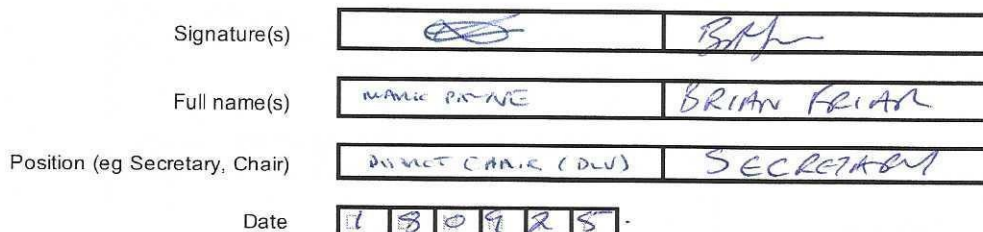 Signature(s)
Full name(s) MARK PAYNE BRIAN FRIAR
Position (eg Secretary, Chair) DISTRICT CHAIR (DLV) SECRETARY
Date 180925